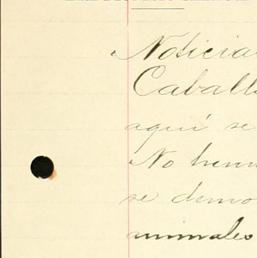 Noticia
Caball
aquí se
No hem
se dimo
nimales